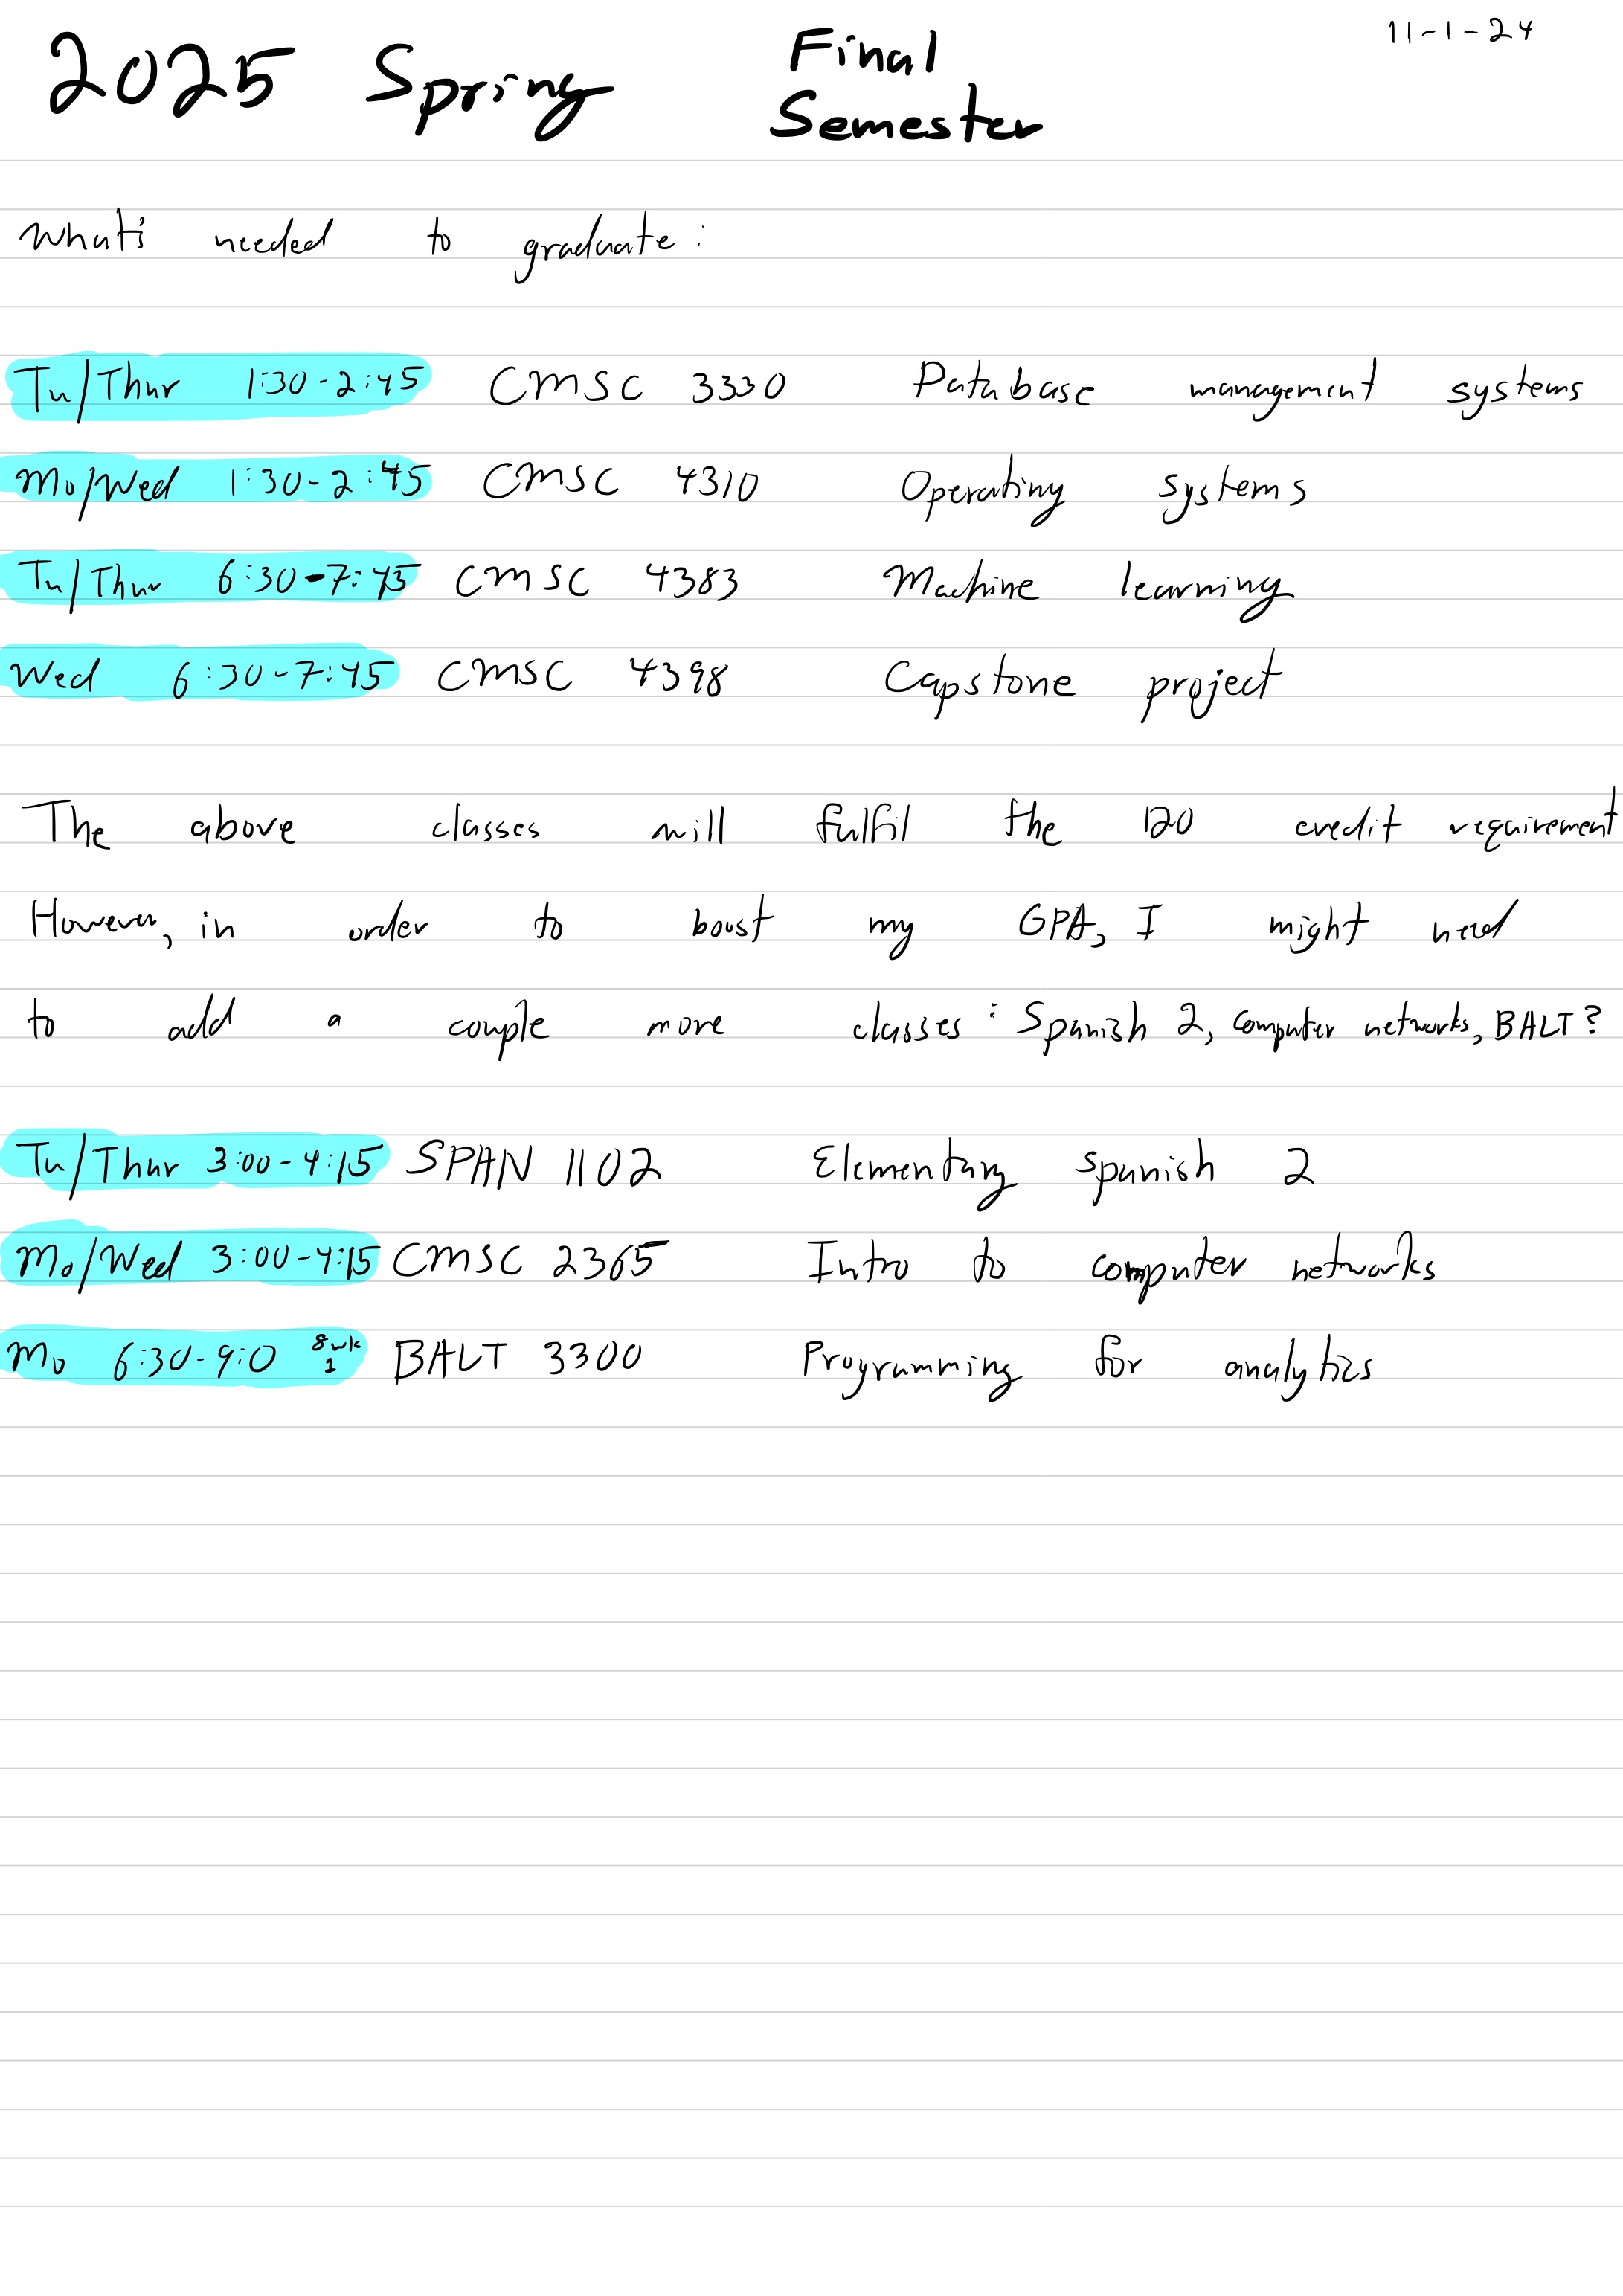 2025 Spring Final Semester 11-1-24
What's needed to graduate:
Tu/Thur 1:30-2:45 CMSC 3330 Database management systems
Mo/Wed 1:30-2:45 CMSC 4310 Operating systems
Tu/Thur 6:30-7:45 CMSC 4383 Machine learning
Wed 6:30-7:45 CMSC 4398 Capstone project
The above classes will fulfil the 120 credit requirement
However, in order to boost my GPA, I might need
to add a couple more classes: Spanish 2, computer networks, BALT?
Tu/Thur 3:00-4:15 SPAN 1102 Elementary spanish 2
Mo/Wed 3:00-4:15 CMSC 2365 Intro to computer networks
Mo 6:30-9:0 8wk 1 BALT 3300 Programming for analytics